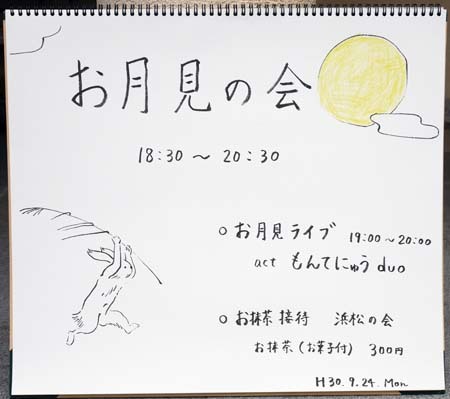 お月見の会
18:30 〜 20:30
○ お月見ライブ 19:00〜20:00
act もんてにゅう duo
○ お抹茶接待 浜松の会
お抹茶(お菓子付) 300円
H30.9.24.Mon